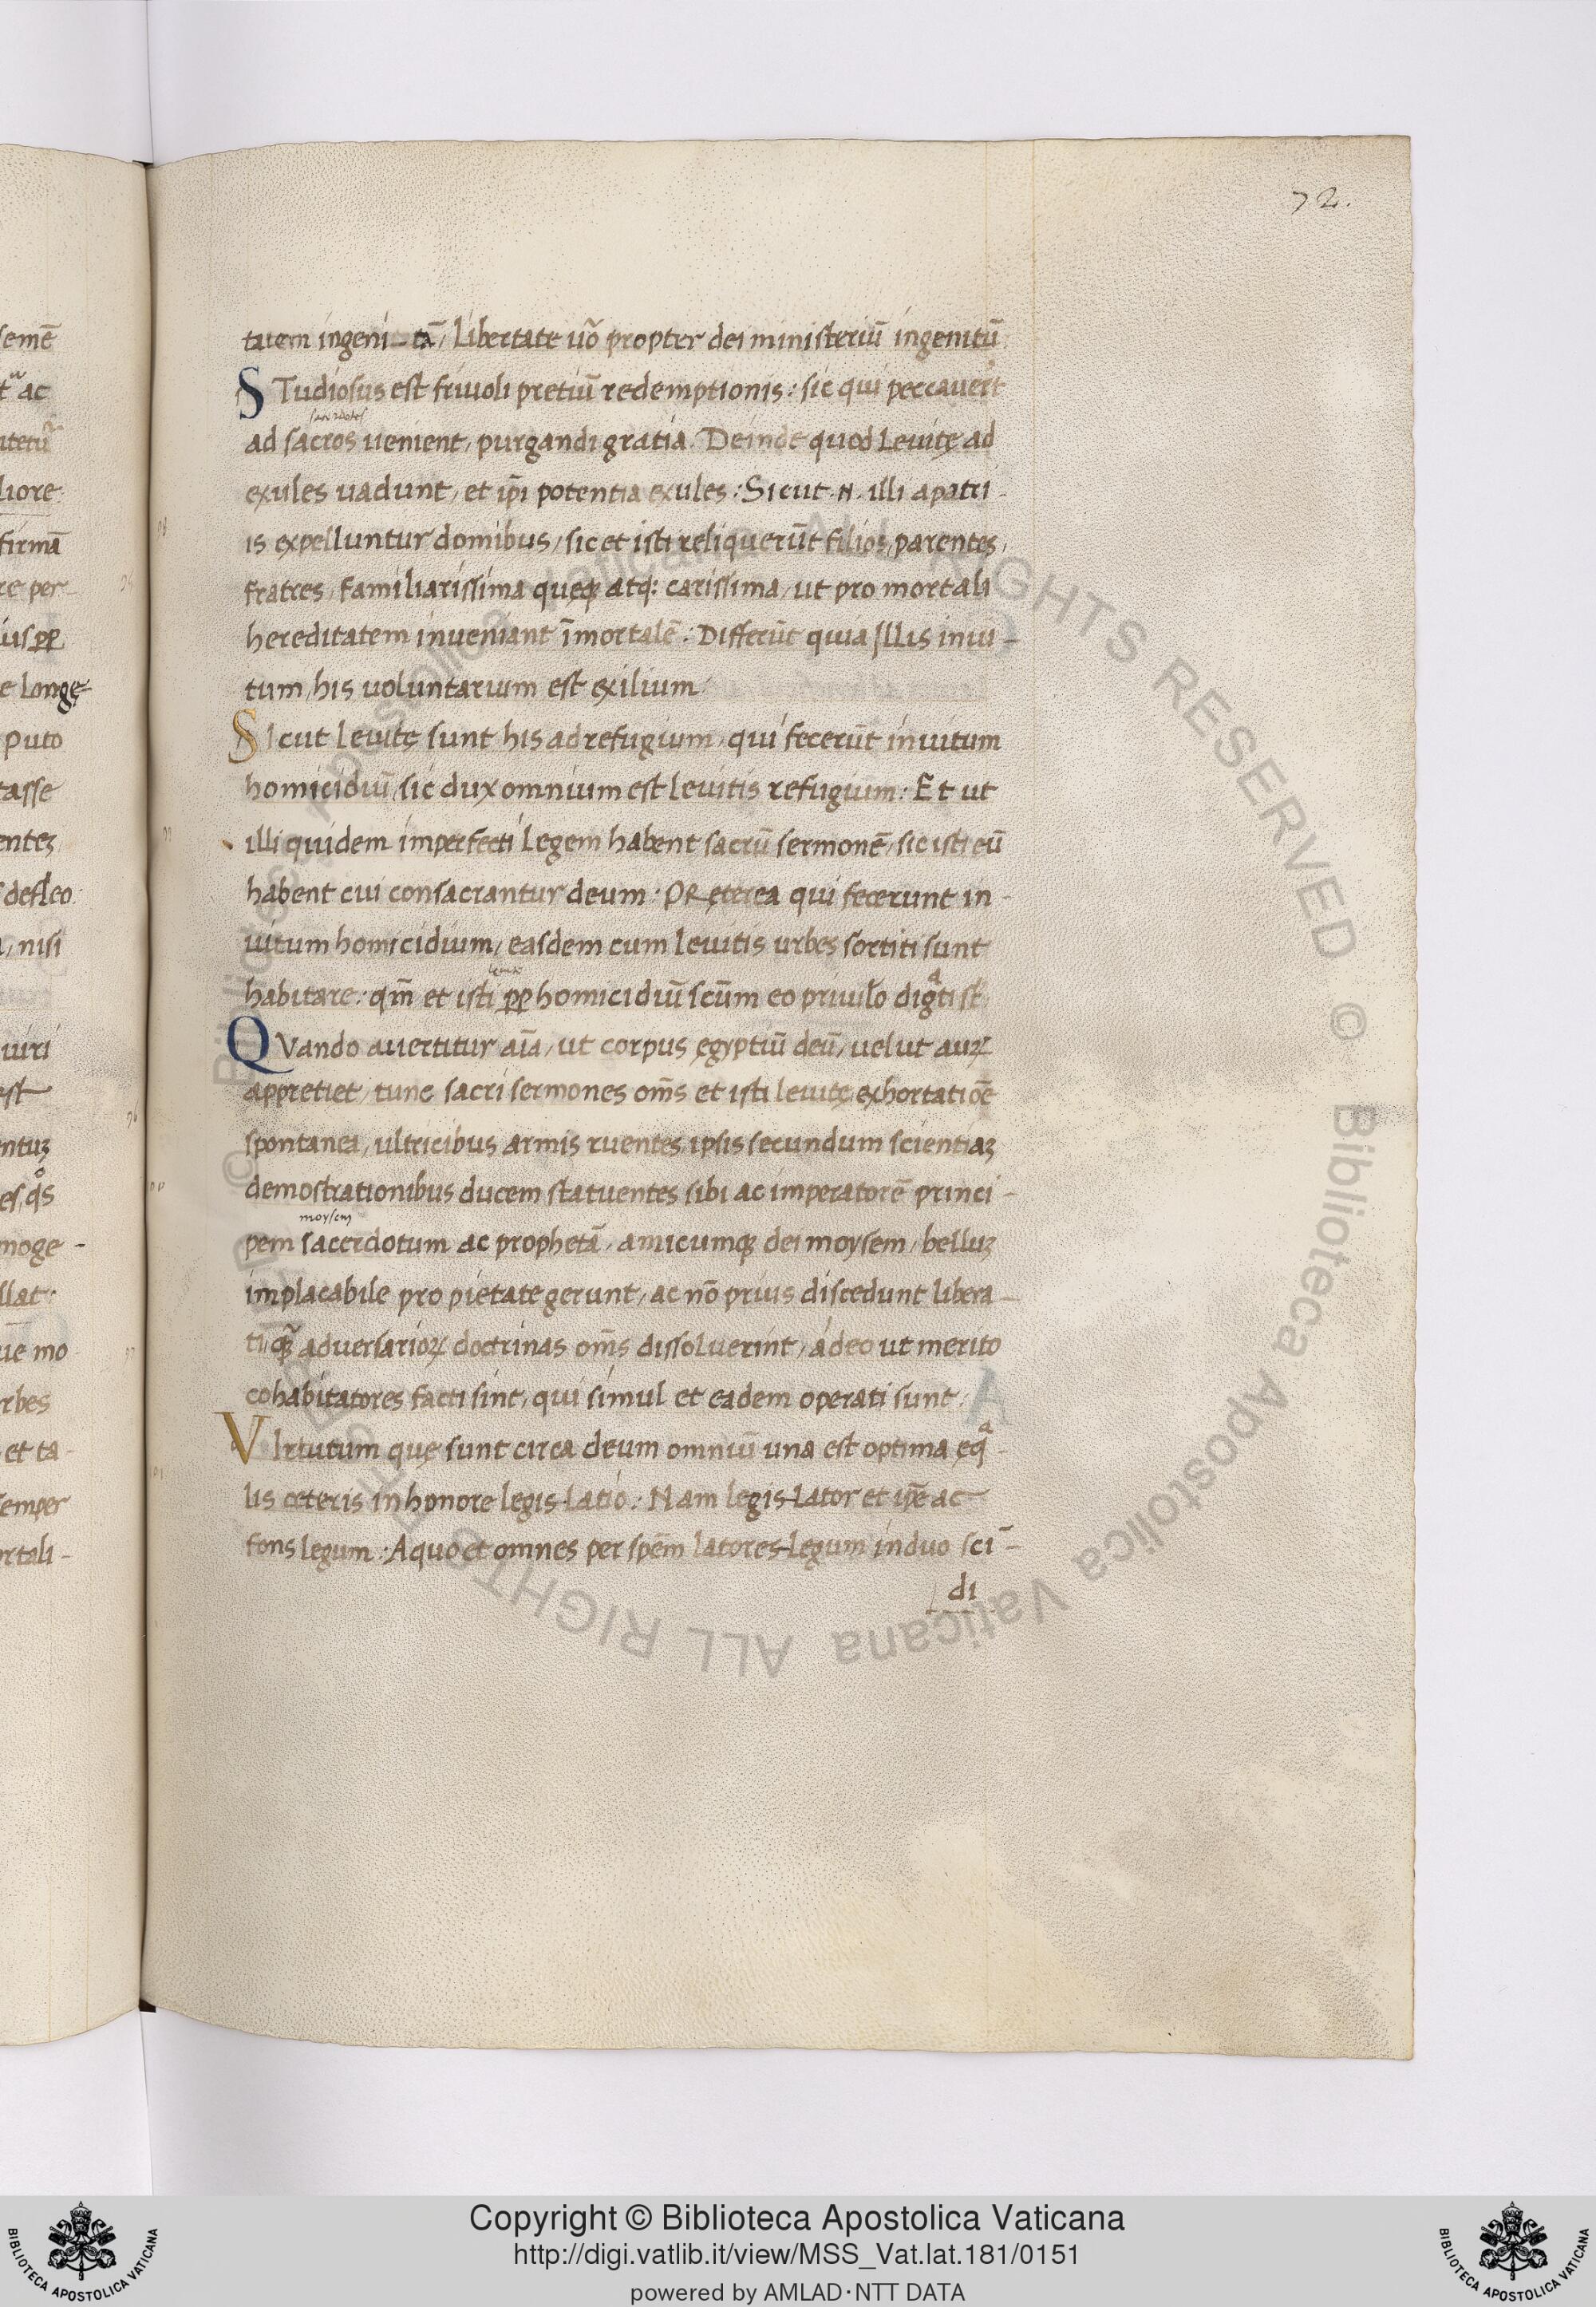 72.
tatem ingeni-tā, Libertate uō propter dei ministeriū ingenitū.
STudiosus est friuoli pretiū redemptionis: sic qui peccauer̄t
sacerdotes
ad sacros uenient, purgandi gratia. Deinde quod Leuitę ad
exules uadunt, et ip̄i potentia exules: Sicut .N. illi a patri-
is expelluntur domibus, sic et isti reliquerūt filios, parentes,
fratres, familiarissima quęqȝ atq: carissima, ut pro mortali
hereditatem inueniant īmortalē: Differūt quia Illis inui-
tum, his uoluntarium est exilium.
SIcut Leuitę sunt his ad refugium, qui fecerūt inuitum
homicidiū, sic dux omnium est leuitis refugium: Et ut
illi quidem imperfecti Legem habent sacrū sermonē, sic isti eū
habent cui consacrantur deum: PRęterea qui fecerunt in-
uitum homicidium, easdem cum leuitis urbes sortiti sunt
habitare: qm̄ et isti pp homicidiū scūm eo priuił̄o digᵃti st̄
QVando auertitur aīa, ut corpus ęgyptiū deū, uelut auꝝ
appretiet, tunc sacri sermones om̄s et isti leuitę exhortatiōe
spontanea, ultricibus armis ruentes, ipsis secundum scientiaȝ
demostrationibus ducem statuentes sibi ac imperatorē princi-
moysem
pem sacerdotum ac prophetā, amicumqȝ dei moysem, belluȝ
implacabile pro pietate gerunt, ac nō prius discedunt libera-
ti, qȝ̄ aduersarioꝝ doctrinas om̄s dissoluerint, adeo ut merito
cohabitatores facti sint, qui simul et eadem operati sunt.
VIrtutum quę sunt circa deum omniū una est optima ęqᵃ-
lis ceteris in honore legis-latio: Nam legis-lator et ip̄e ac
fons legum: A quo et omnes per spēm latores-legum in duo sci̅-
di
semē
tᵃ ac
utetū
liore
firmā
re per-
ius pp
e longę-
puto
tasse
enteȝ
defleo.
, nisi
uiri
est
entuȝ
es, qͦs
moge-
llat.
ue mo
rbes
et ta-
semper
ortali-
Copyright © Biblioteca Apostolica Vaticana
http://digi.vatlib.it/view/MSS_Vat.lat.181/0151
powered by AMLAD·NTT DATA
BIBLIOTECA APOSTOLICA VATICANA
BIBLIOTECA APOSTOLICA VATICANA
© Biblioteca Apostolica Vaticana ALL RIGHTS RESERVED © Biblioteca Apostolica Vaticana ALL RIGHTS RESERVED